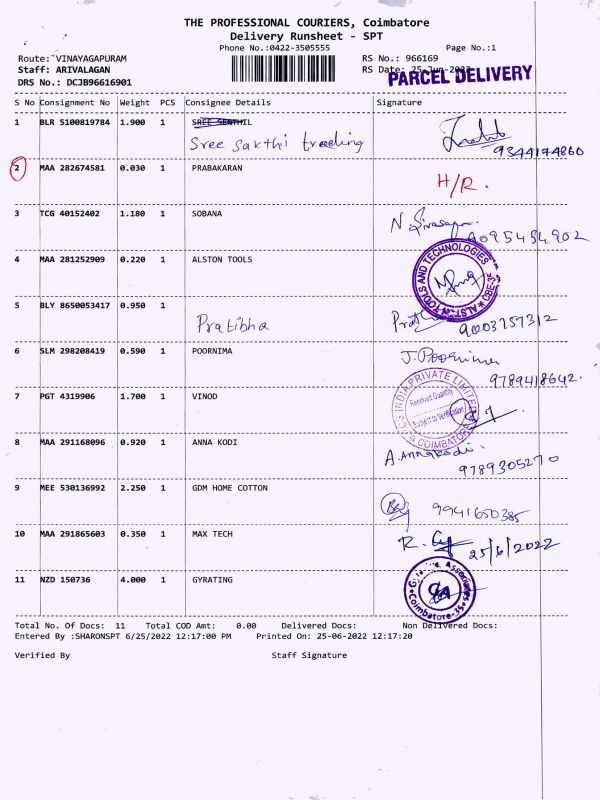 THE PROFESSIONAL COURIERS, Coimbatore
Delivery Runsheet - SPT
Phone No.:0422-3505555
Page No.:1
Route: VINAYAGAPURAM
RS No.: 966169
Staff: ARIVALAGAN
RS Date: 25-Jun-2022
PARCEL DELIVERY
DRS No.: DCJB96616901
S No Consignment No Weight PCS Consignee Details Signature
1 BLR 5100819784 1.900 1 SREE SENTHIL
Sree Sakthi trading
9344174860
2 MAA 282674581 0.030 1 PRABAKARAN
H/R.
3 TCG 40152402 1.180 1 SOBANA
4 MAA 281252909 0.220 1 ALSTON TOOLS
TOOLS AND TECHNOLOGIES
5 BLY 8650053417 0.950 1
Pratibha
9003757312
6 SLM 298208419 0.590 1 POORNIMA
J. Poornima
9789418642.
7 PGT 4319906 1.700 1 VINOD
INDIA PRIVATE LIMITED
Received Quantity
Subject to Verification
COIMBATORE
8 MAA 291168096 0.920 1 ANNA KODI
A. Annakodi.
9789305270
9 MEE 530136992 2.250 1 GDM HOME COTTON
9941650385
10 MAA 291865603 0.350 1 MAX TECH
25/6/2022
11 NZD 150736 4.000 1 GYRATING
Coimbatore-35
Total No. Of Docs: 11 Total COD Amt: 0.00 Delivered Docs: Non Delivered Docs:
Entered By :SHARONSPT 6/25/2022 12:17:00 PM Printed On: 25-06-2022 12:17:20
Verified By Staff Signature